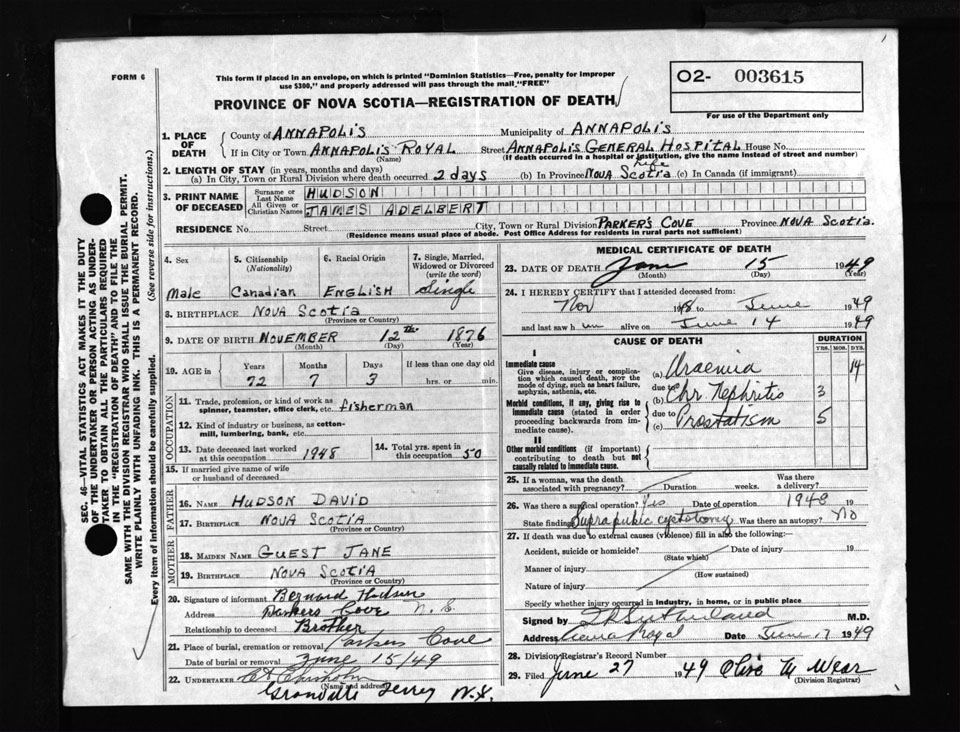 FORM 6
This form if placed in an envelope, on which is printed "Dominion Statistics—Free, penalty for improper
use $300," and properly addressed will pass through the mail "FREE"
O2- 003615
For use of the Department only
PROVINCE OF NOVA SCOTIA—REGISTRATION OF DEATH
1. PLACE OF DEATH
County of ANNAPOLIS Municipality of ANNAPOLIS
If in City or Town ANNAPOLIS ROYAL Street ANNAPOLIS GENERAL HOSPITAL House No.
(Name) (If death occurred in a hospital or institution, give the name instead of street and number)
2. LENGTH OF STAY (in years, months and days)
(a) In City, Town or Rural Division where death occurred 2 days (b) In Province NOVA SCOTIA Life (c) In Canada (if immigrant)
3. PRINT NAME OF DECEASED
Surname or Last Name HUDSON
All Given or Christian Names JAMES ADELBERT
RESIDENCE No. Street City, Town or Rural Division PARKER'S COVE Province NOVA SCOTIA.
(Residence means usual place of abode. Post Office Address for residents in rural parts not sufficient)
SEC. 46—VITAL STATISTICS ACT MAKES IT THE DUTY
OF THE UNDERTAKER OR PERSON ACTING AS UNDER-
TAKER TO OBTAIN ALL THE PARTICULARS REQUIRED
IN THE "REGISTRATION OF DEATH" AND TO FILE THE
SAME WITH THE DIVISION REGISTRAR WHO SHALL ISSUE THE BURIAL PERMIT.
WRITE PLAINLY WITH UNFADING INK. THIS IS A PERMANENT RECORD.
Every item of information should be carefully supplied. (See reverse side for instructions.)
4. Sex
Male
5. Citizenship
(Nationality)
Canadian
6. Racial Origin
ENGLISH
7. Single, Married,
Widowed or Divorced
(write the word)
Single
8. BIRTHPLACE NOVA SCOTIA
(Province or Country)
9. DATE OF BIRTH NOVEMBER 12th 1876
(Month) (Day) (Year)
10. AGE Years Months Days If less than one day old
72 7 3 hrs. or min.
OCCUPATION
11. Trade, profession, or kind of work as
spinner, teamster, office clerk, etc. fisherman
12. Kind of industry or business, as cotton-
mill, lumbering, bank, etc.
13. Date deceased last worked
at this occupation 1948
14. Total yrs. spent in
this occupation 50
15. If married give name of wife
or husband of deceased
FATHER
16. NAME HUDSON DAVID
17. BIRTHPLACE NOVA SCOTIA
(Province or Country)
MOTHER
18. MAIDEN NAME GUEST JANE
19. BIRTHPLACE NOVA SCOTIA
(Province or Country)
20. Signature of informant Bernard Hudson
Address Parkers Cove N.S.
Relationship to deceased Brother
21. Place of burial, cremation or removal Parkers Cove
Date of burial or removal June 15/49
22. UNDERTAKER Chisholm
(Name and address)
Granville Ferry N.S.
MEDICAL CERTIFICATE OF DEATH
23. DATE OF DEATH June 15 1949
(Month) (Day) (Year)
24. I HEREBY CERTIFY that I attended deceased from:
Nov 1948 to June 1949
and last saw h im alive on June 14 1949
CAUSE OF DEATH
DURATION
YRS. MOS. DYS.
I
Immediate cause
Give disease, injury or complica-
tion which caused death, NOT the
mode of dying, such as heart failure,
asphyxia, asthenia, etc.
(a) Uraemia 14
due to
Morbid conditions, if any, giving rise to
immediate cause (stated in order
proceeding backwards from im-
mediate cause).
(b) Chr Nephritis 3
due to
(c) Prostatism 5
II
Other morbid conditions (if important)
contributing to death but not
causally related to immediate cause.
25. If a woman, was the death
associated with pregnancy? Duration weeks. Was there
a delivery?
26. Was there a surgical operation? Yes Date of operation 1948 19
State findings Suprapubic cystotomy Was there an autopsy? No
27. If death was due to external causes (violence) fill in also the following:—
Accident, suicide or homicide? Date of injury 19
(State which)
Manner of injury
(How sustained)
Nature of injury
Specify whether injury occurred in industry, in home, or in public place
Signed by Sutherland M.D.
Address Anna Royal Date June 17 1949
28. Division Registrar's Record Number
29. Filed June 27 1949 Olive M Wear
(Division Registrar)